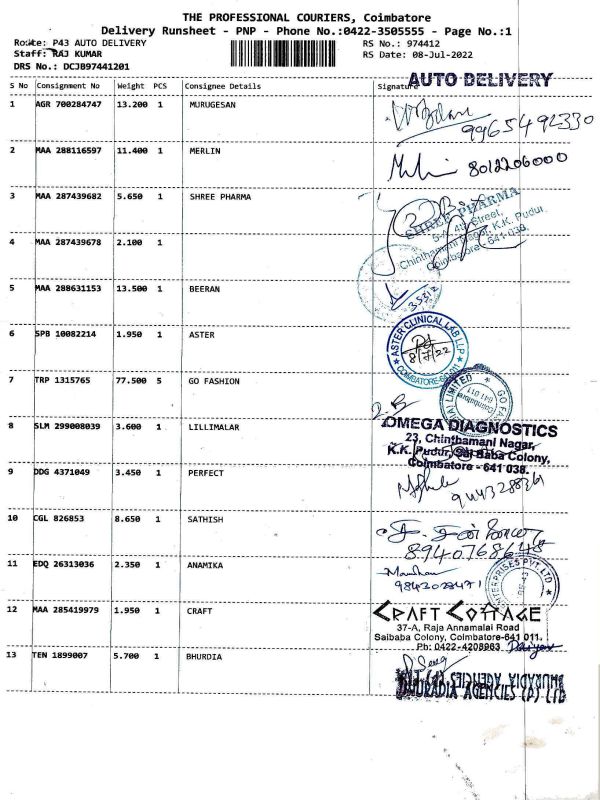 THE PROFESSIONAL COURIERS, Coimbatore
Delivery Runsheet - PNP - Phone No.:0422-3505555 - Page No.:1
Route: P43 AUTO DELIVERY
RS No.: 974412
Staff: RAJ KUMAR
RS Date: 08-Jul-2022
DRS No.: DCJB97441201
AUTO DELIVERY
S No Consignment No Weight PCS Consignee Details Signature
1 AGR 700284747 13.200 1 MURUGESAN
9965492330
2 MAA 288116597 11.400 1 MERLIN
8012206000
3 MAA 287439682 5.650 1 SHREE PHARMA
SHREE PHARMA
Street,
Chinthamani Nagar, K.K. Pudur,
Coimbatore - 641 038.
4 MAA 287439678 2.100 1
5 MAA 288631153 13.500 1 BEERAN
6 SPB 10082214 1.950 1 ASTER
ASTER CLINICAL LAB LLP
8/7/22
COIMBATORE-641 011
7 TRP 1315765 77.500 5 GO FASHION
8 SLM 299008039 3.600 1 LILLIMALAR
OMEGA DIAGNOSTICS
23, Chinthamani Nagar,
K.K. Pudur, Sai Baba Colony,
Coimbatore - 641 038.
9 DDG 4371049 3.450 1 PERFECT
10 CGL 826853 8.650 1 SATHISH
8940768648
11 EDQ 26313036 2.350 1 ANAMIKA
ENTERPRISES PVT LTD
12 MAA 285419979 1.950 1 CRAFT
CRAFT COTTAGE
37-A, Raja Annamalai Road
Saibaba Colony, Coimbatore-641 011.
Ph: 0422-4208963
13 TEN 1899007 5.700 1 BHURDIA
BHURADIA AGENCIES (P) LTD
BHURADIA AGENCIES (P) LTD